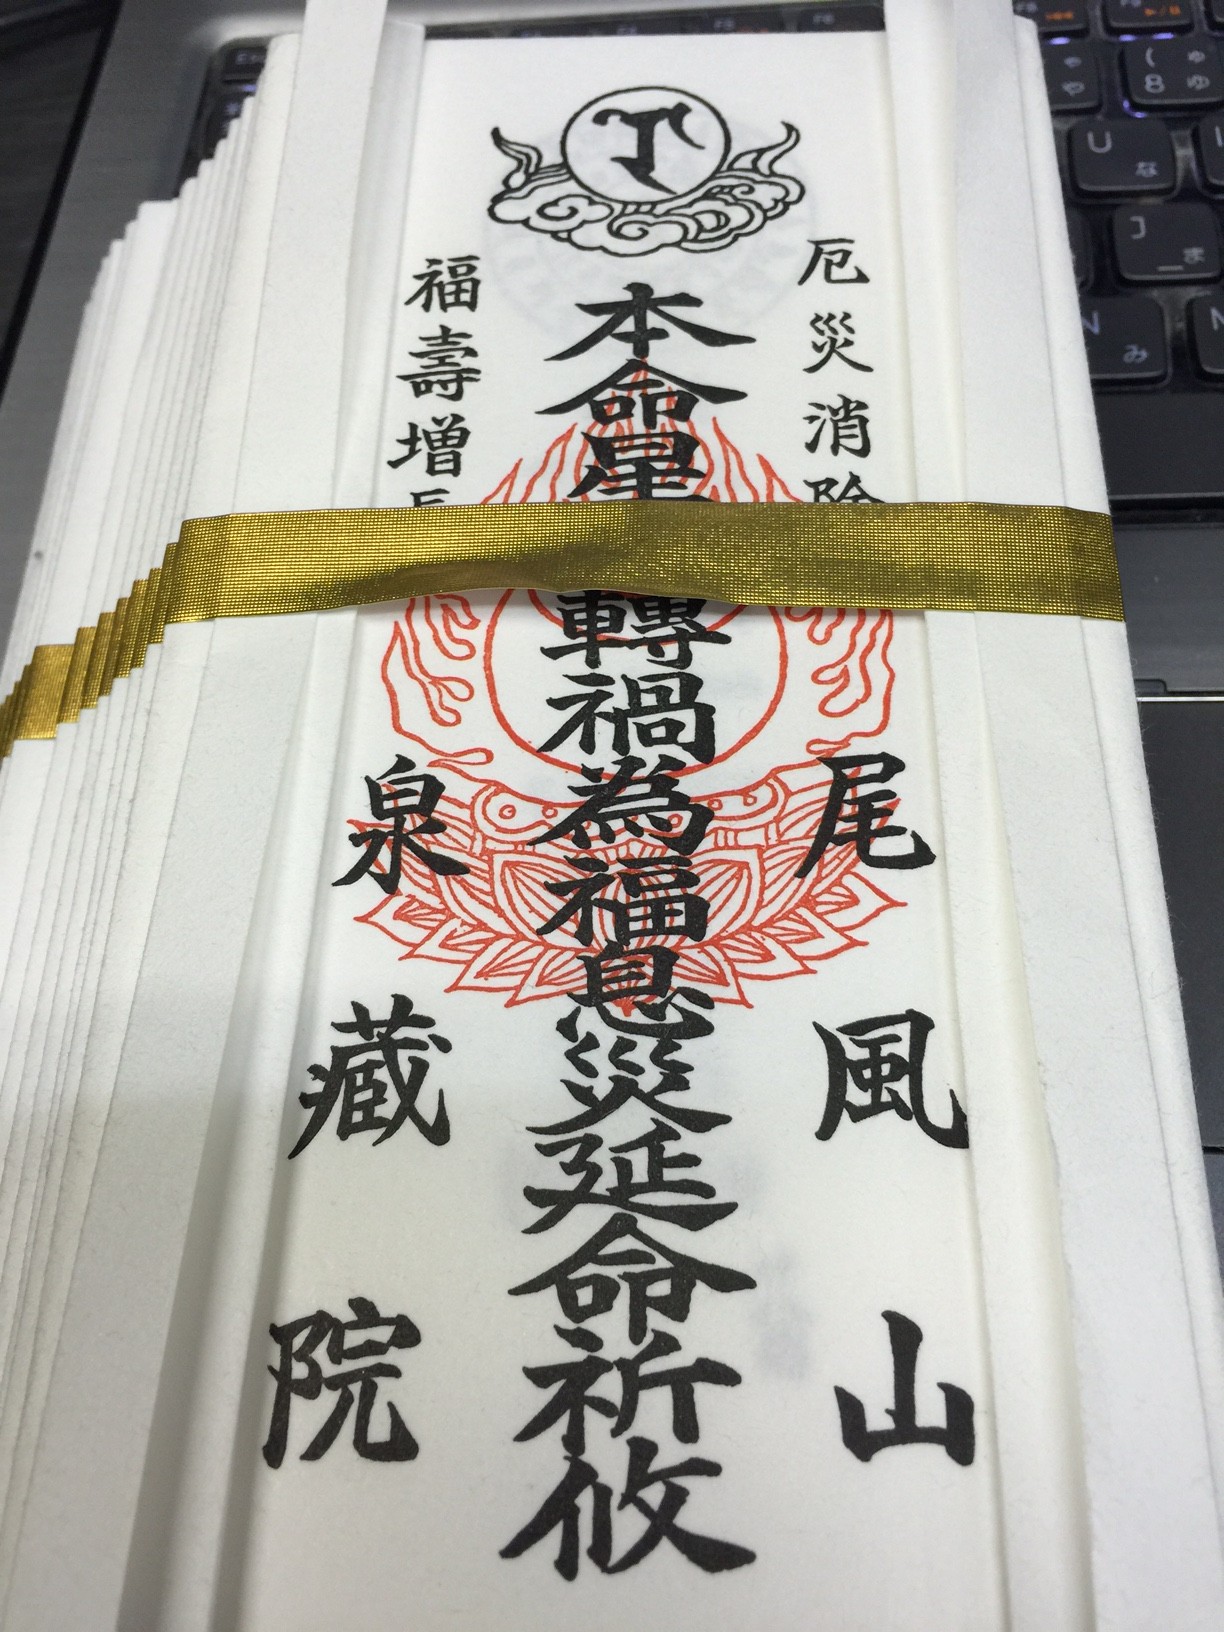 厄災消除
尾風山
本命星
轉禍為福息災延命祈攸
福壽増
泉藏院
ゃ
や
( ゅ
8 ゆ
U
な
J
ま
N
み